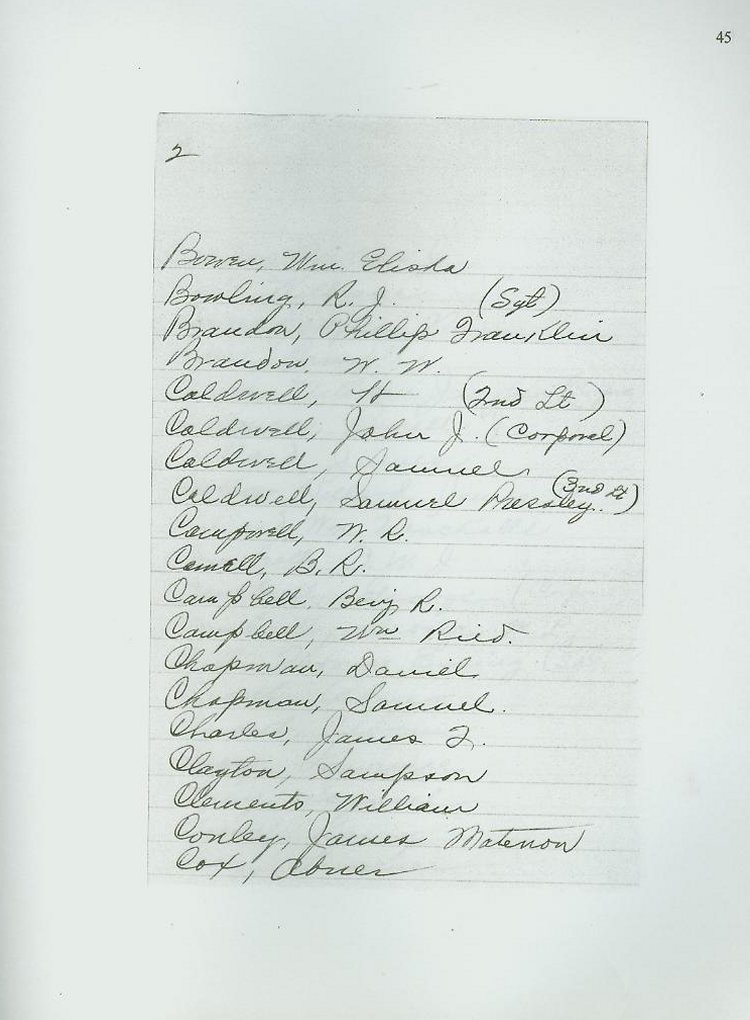 45
2
Bowen, Wm. Elisha
Bowling, R. J. (Sgt)
Brandon, Phillip Franklin
Brandon, W. W.
Caldwell, H (2nd Lt)
Caldwell, John J. (Corporal)
Caldwell, Samuel
Caldwell, Samuel Pressley. (3nd Lt)
Campwell, W. R.
Camell, B. R.
Campbell, Benj R.
Campbell, Wm Ried.
Chapman, Daniel
Chapman, Samuel.
Charles, James F.
Clayton, Sampson
Clements, William
Conley, James
Cox, Abner